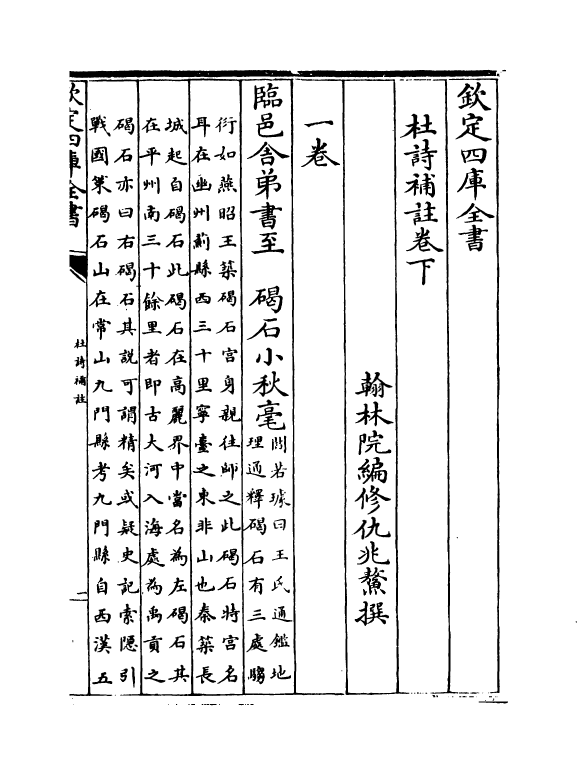 欽定四庫全書
杜詩補註卷下
翰林院編修仇兆鰲撰
一卷
臨邑舍弟書至　碣石小秋毫
閻若璩曰王氏通鑑地
理通釋碣石有三處騶
衍如燕昭王築碣石宫身親往師之此碣石特宫名
耳在幽州薊縣西三十里寧臺之東非山也秦築長
城起自碣石此碣石在高麗界中當名為左碣石其
在平州南三十餘里者即古大河入海處為禹貢之
碣石亦曰右碣石其說可謂精矣或疑史記索隱引
戰國策碣石山在常山九門縣考九門縣自西漢五
欽定四庫全書
杜詩補註
一